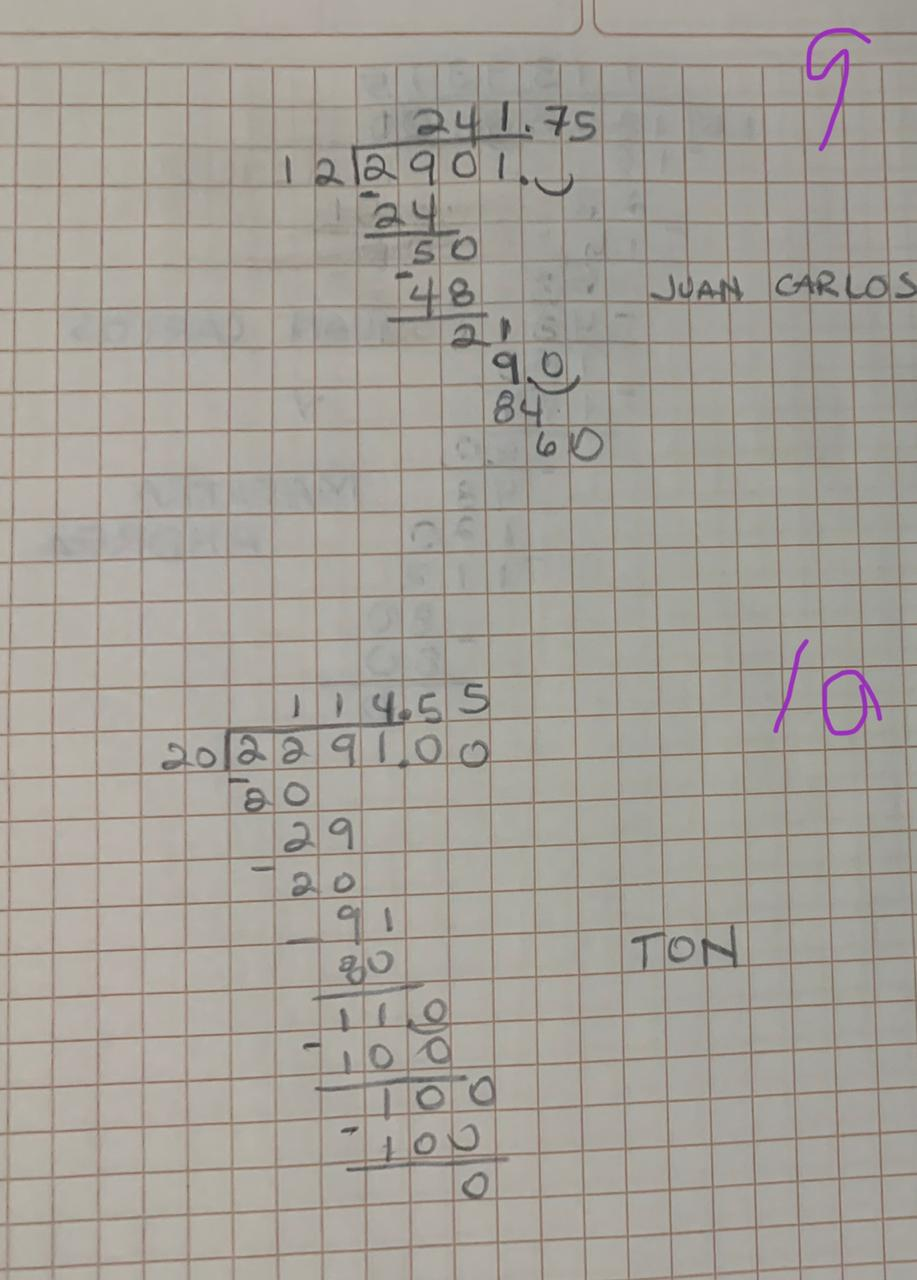 9
241.75
12 2901.
-24
50
-48
JUAN CARLOS
21
90
84
60
10
114.55
20 2291.00
-20
29
-20
91
- 80
TON
110
-100
100
-100
0